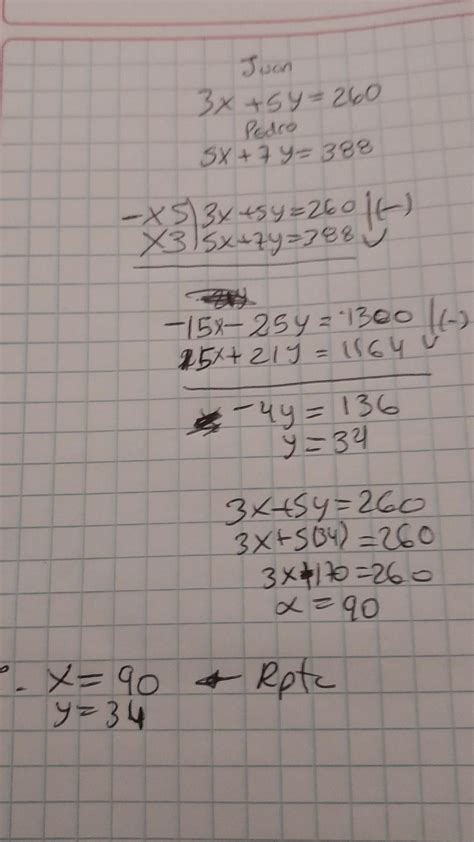 Juan
3x + 5y = 260
Pedro
5x + 7y = 388
-x5) 3x+5y=260 |(-)
x3) 5x+7y=388 ✓
-15x - 25y = -1300 |(-)
15x + 21y = 1164 ✓
-4y = 136
y = 34
3x+5y=260
3x+5(34) =260
3x+170=260
x = 90
x = 90 ← Rpta
y = 34